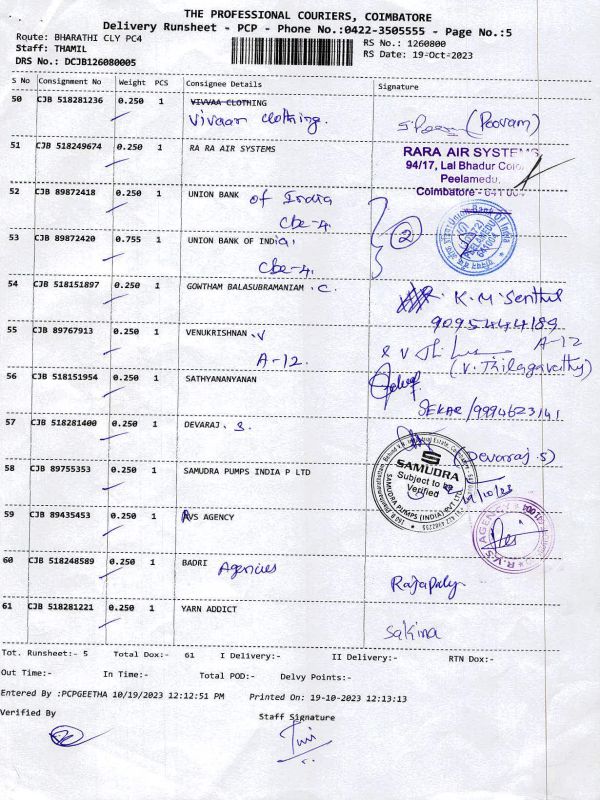 THE PROFESSIONAL COURIERS, COIMBATORE
Delivery Runsheet - PCP - Phone No.:0422-3505555 - Page No.:5
Route: BHARATHI CLY PC4 RS No.: 1260800
Staff: THAMIL RS Date: 19-Oct-2023
DRS No.: DCJB126080005
S No Consignment No Weight PCS Consignee Details Signature
50 CJB 518281236 0.250 1 VIVVAA CLOTHING
Vivaan clothing. (Poovam)
51 CJB 518249674 0.250 1 RA RA AIR SYSTEMS RARA AIR SYSTEMS
94/17, Lal Bhadur
Peelamedu,
Coimbatore - 641 004
52 CJB 89872418 0.250 1 UNION BANK of India
Cbe-4. 2
53 CJB 89872420 0.755 1 UNION BANK OF INDIA,
Cbe-4.
54 CJB 518151897 0.250 1 GOWTHAM BALASUBRAMANIAM . C. K.M Senthil
9095444189
55 CJB 89767913 0.250 1 VENUKRISHNAN .V A-12
A-12. (V. Thilagavathy)
56 CJB 518151954 0.250 1 SATHYANANYANAN
SEKAR/9994623141
57 CJB 518281400 0.250 1 DEVARAJ . S. (Devaraj.S)
SAMUDRA
Subject to be
Verified
SAMUDRA PUMPS (INDIA) PVT LTD
58 CJB 89755353 0.250 1 SAMUDRA PUMPS INDIA P LTD 19/10/23
59 CJB 89435453 0.250 1 RVS AGENCY R.V.S AGENCY
60 CJB 518248589 0.250 1 BADRI Agencies
61 CJB 518281221 0.250 1 YARN ADDICT Sakina
Tot. Runsheet:- 5 Total Dox:- 61 I Delivery:- II Delivery:- RTN Dox:-
Out Time:- In Time:- Total POD:- Delvy Points:-
Entered By :PCPGEETHA 10/19/2023 12:12:51 PM Printed On: 19-10-2023 12:13:13
Verified By Staff Signature